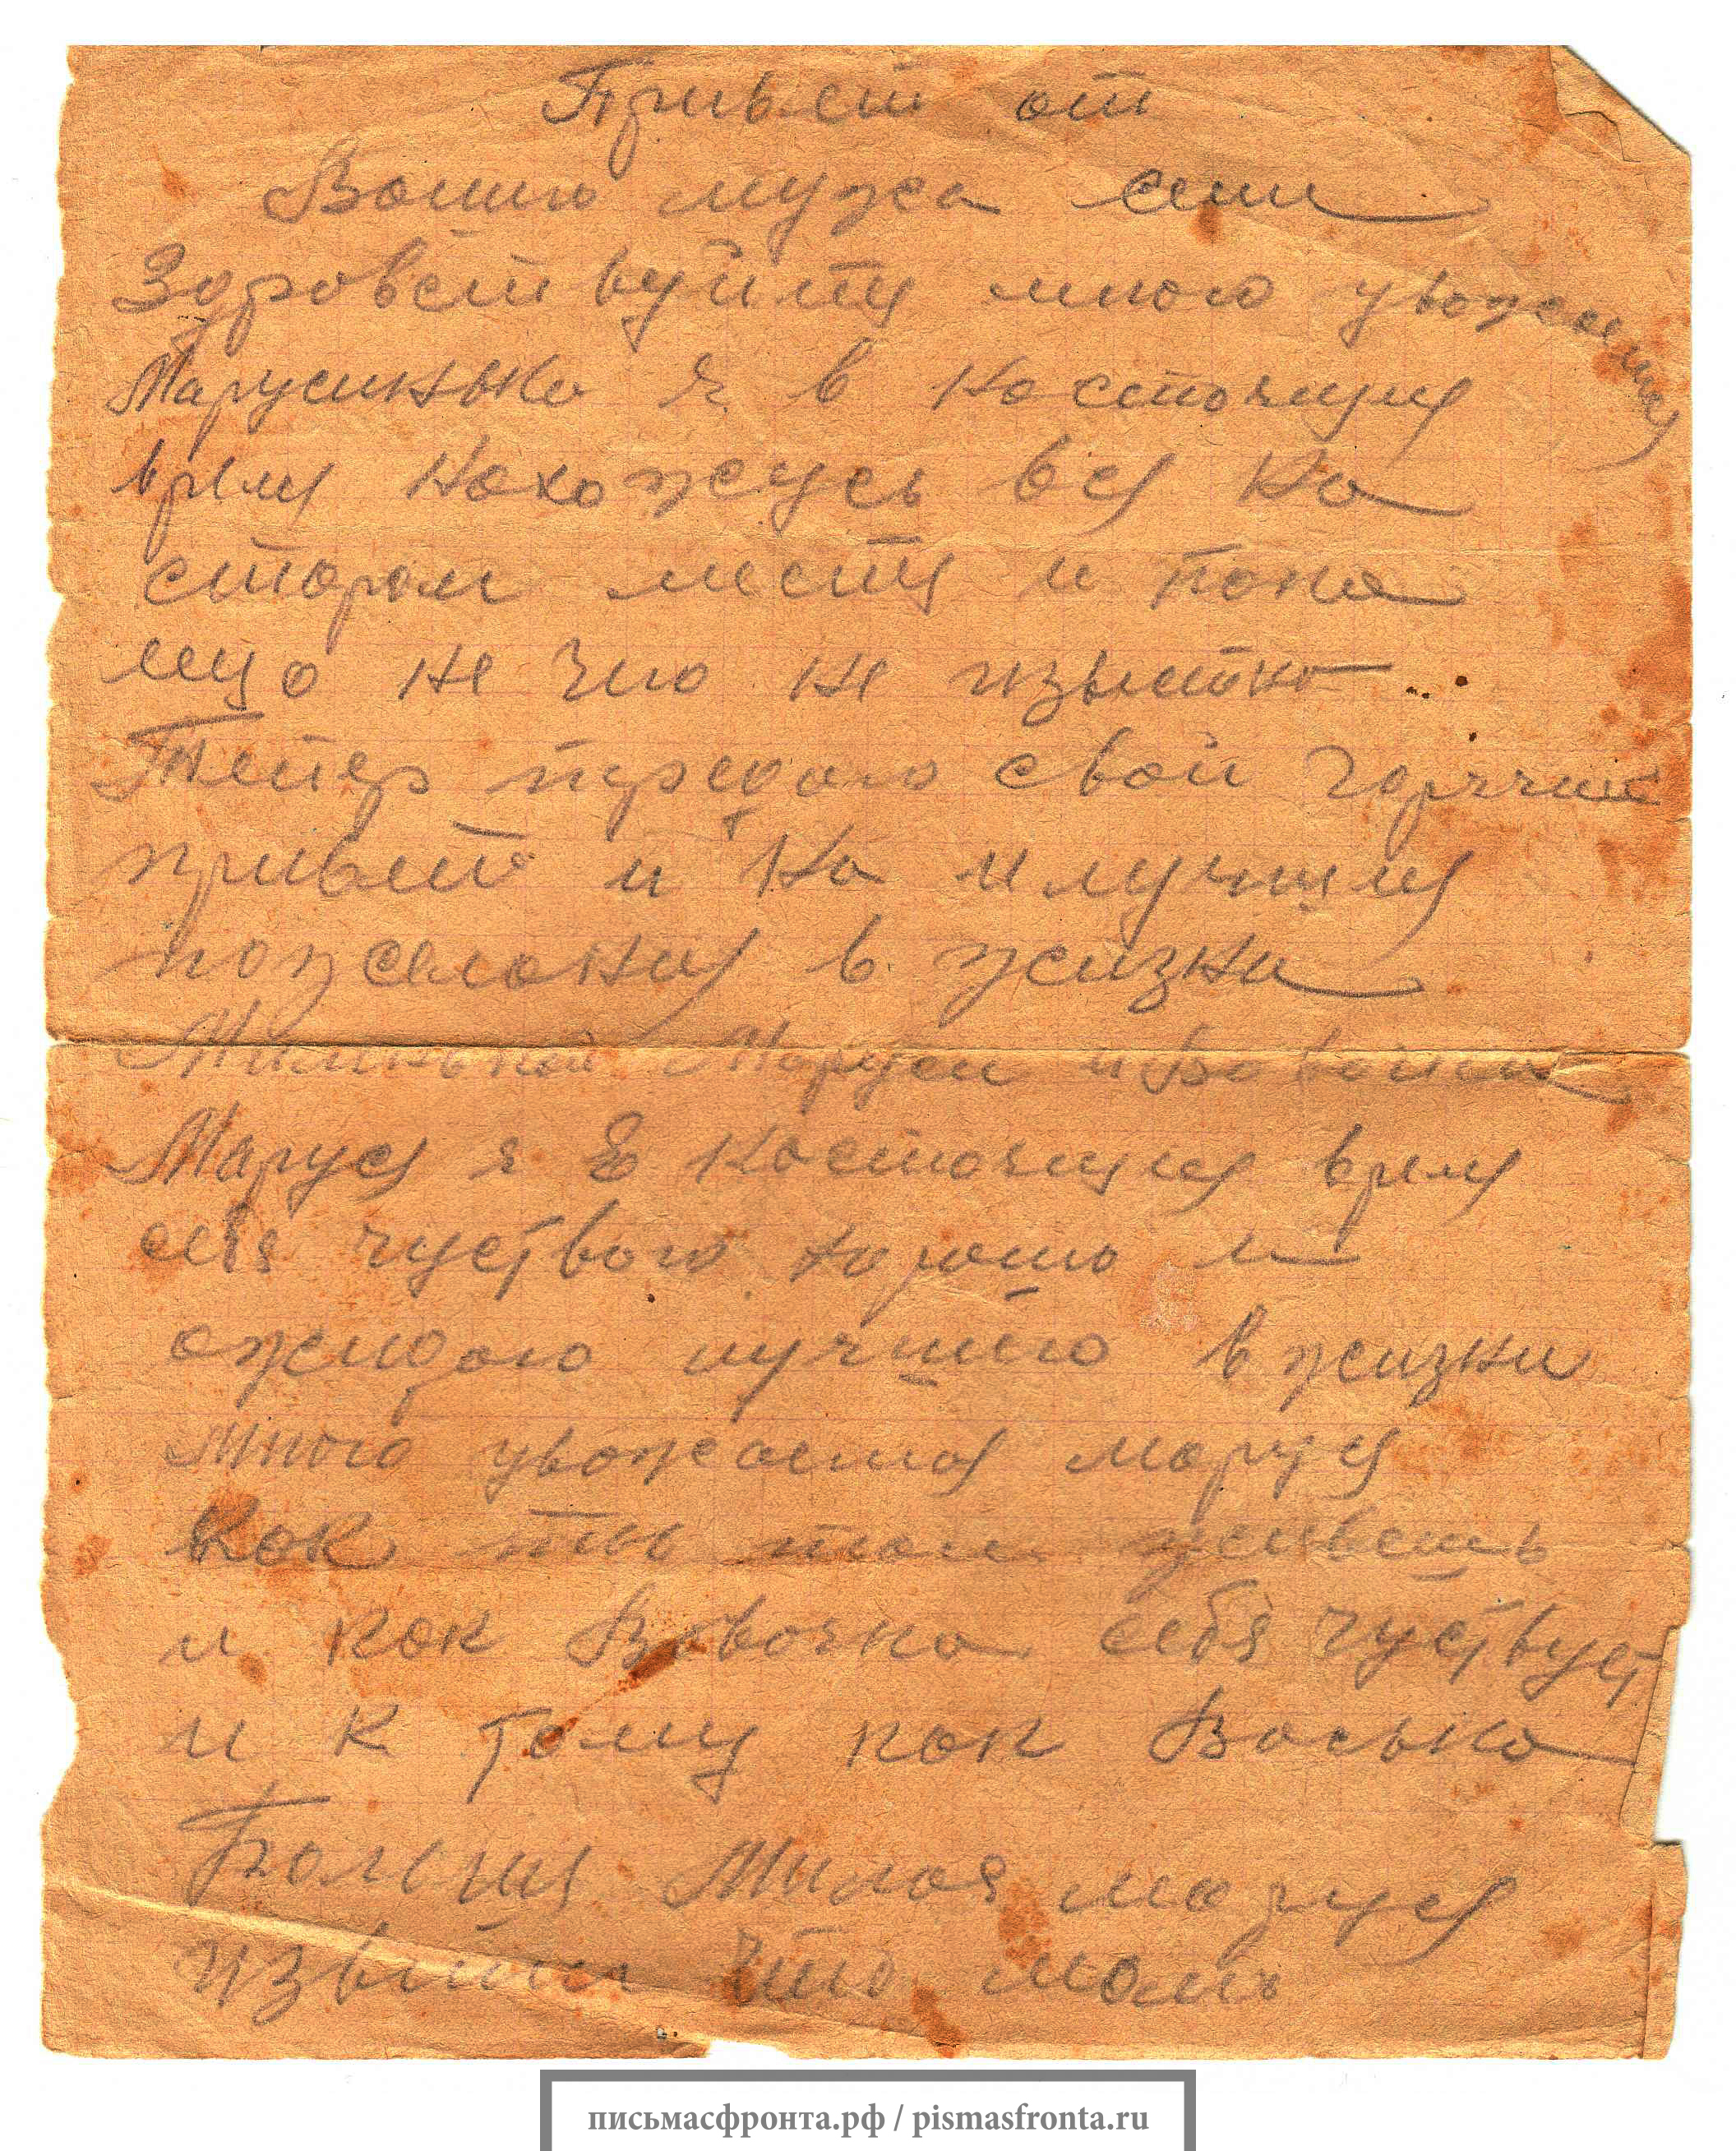 Привет от
Вашего мужа сени
Здровствуйте много уважаемая
Марусинька я в настоящие
время нахожусь все на
старом месте и пока
еще не чго не известно
Тепер передаю свой горячий
привет и на илучшие
пожелания в жизни
Милинькой Маруси и Вовочки
Маруся я в настоящие время
себя чуствою хорошо и
ожидаю лучшего в жизни
Много уважаемая маруся
как ты там живешь
и как Вовочка себя чуствует
и к тому как Васька
Больше Милоя маруся
извени что мало
письмасфронта.рф / pismasfronta.ru